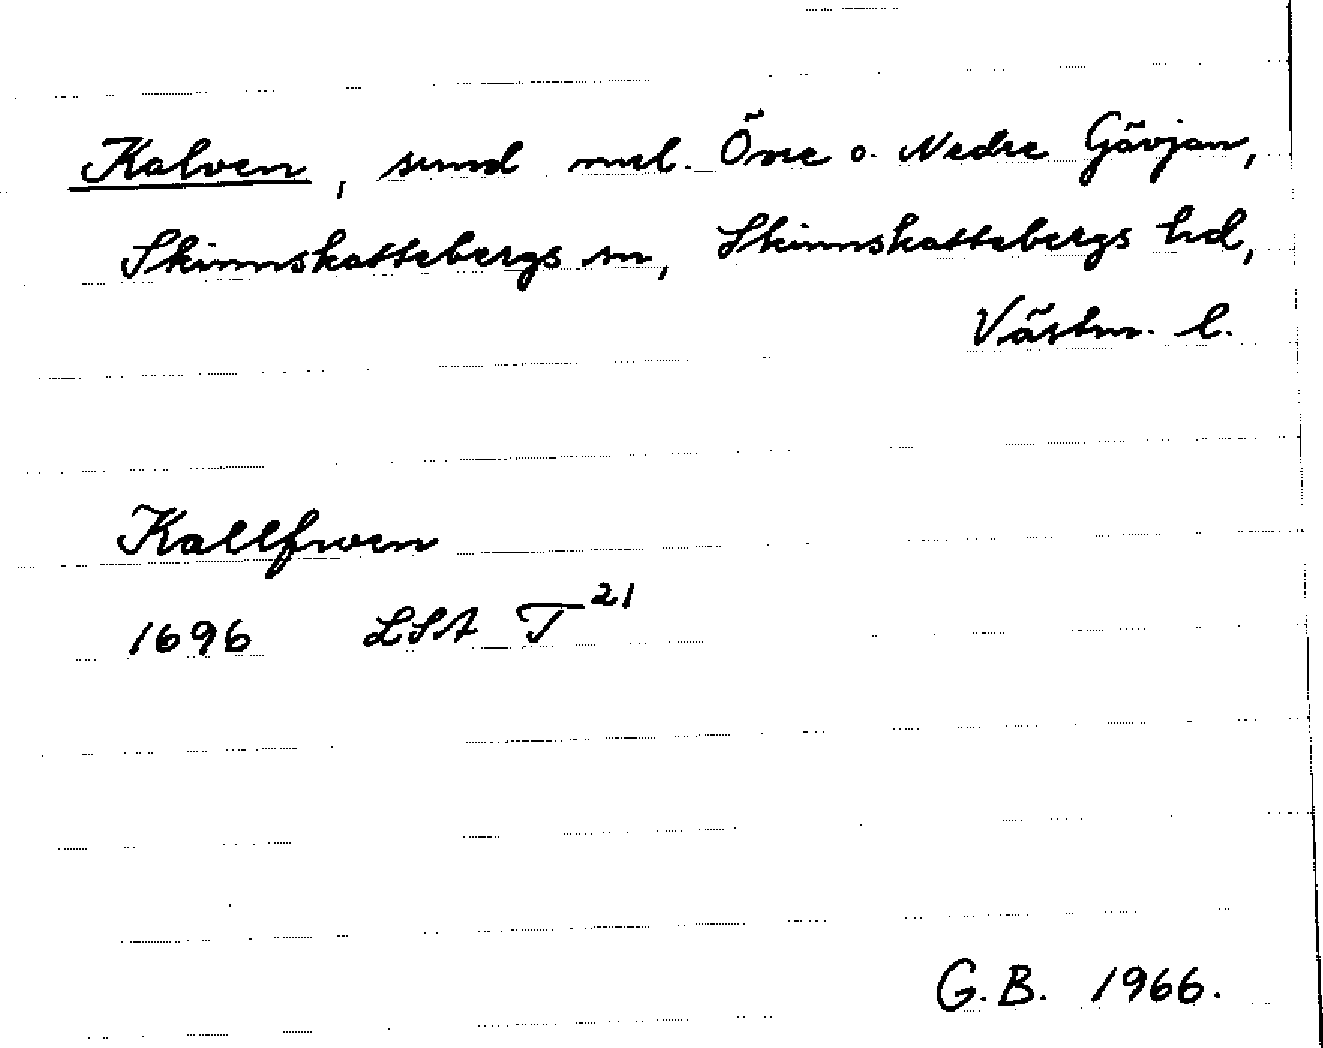 Kalven, sund mel. Övre o. Nedre Gävjan,
Skinnskattebergs sn, Skinnskattebergs hd,
Västm. l.
Kallfwen
1696 LSA T 21
G.B. 1966.